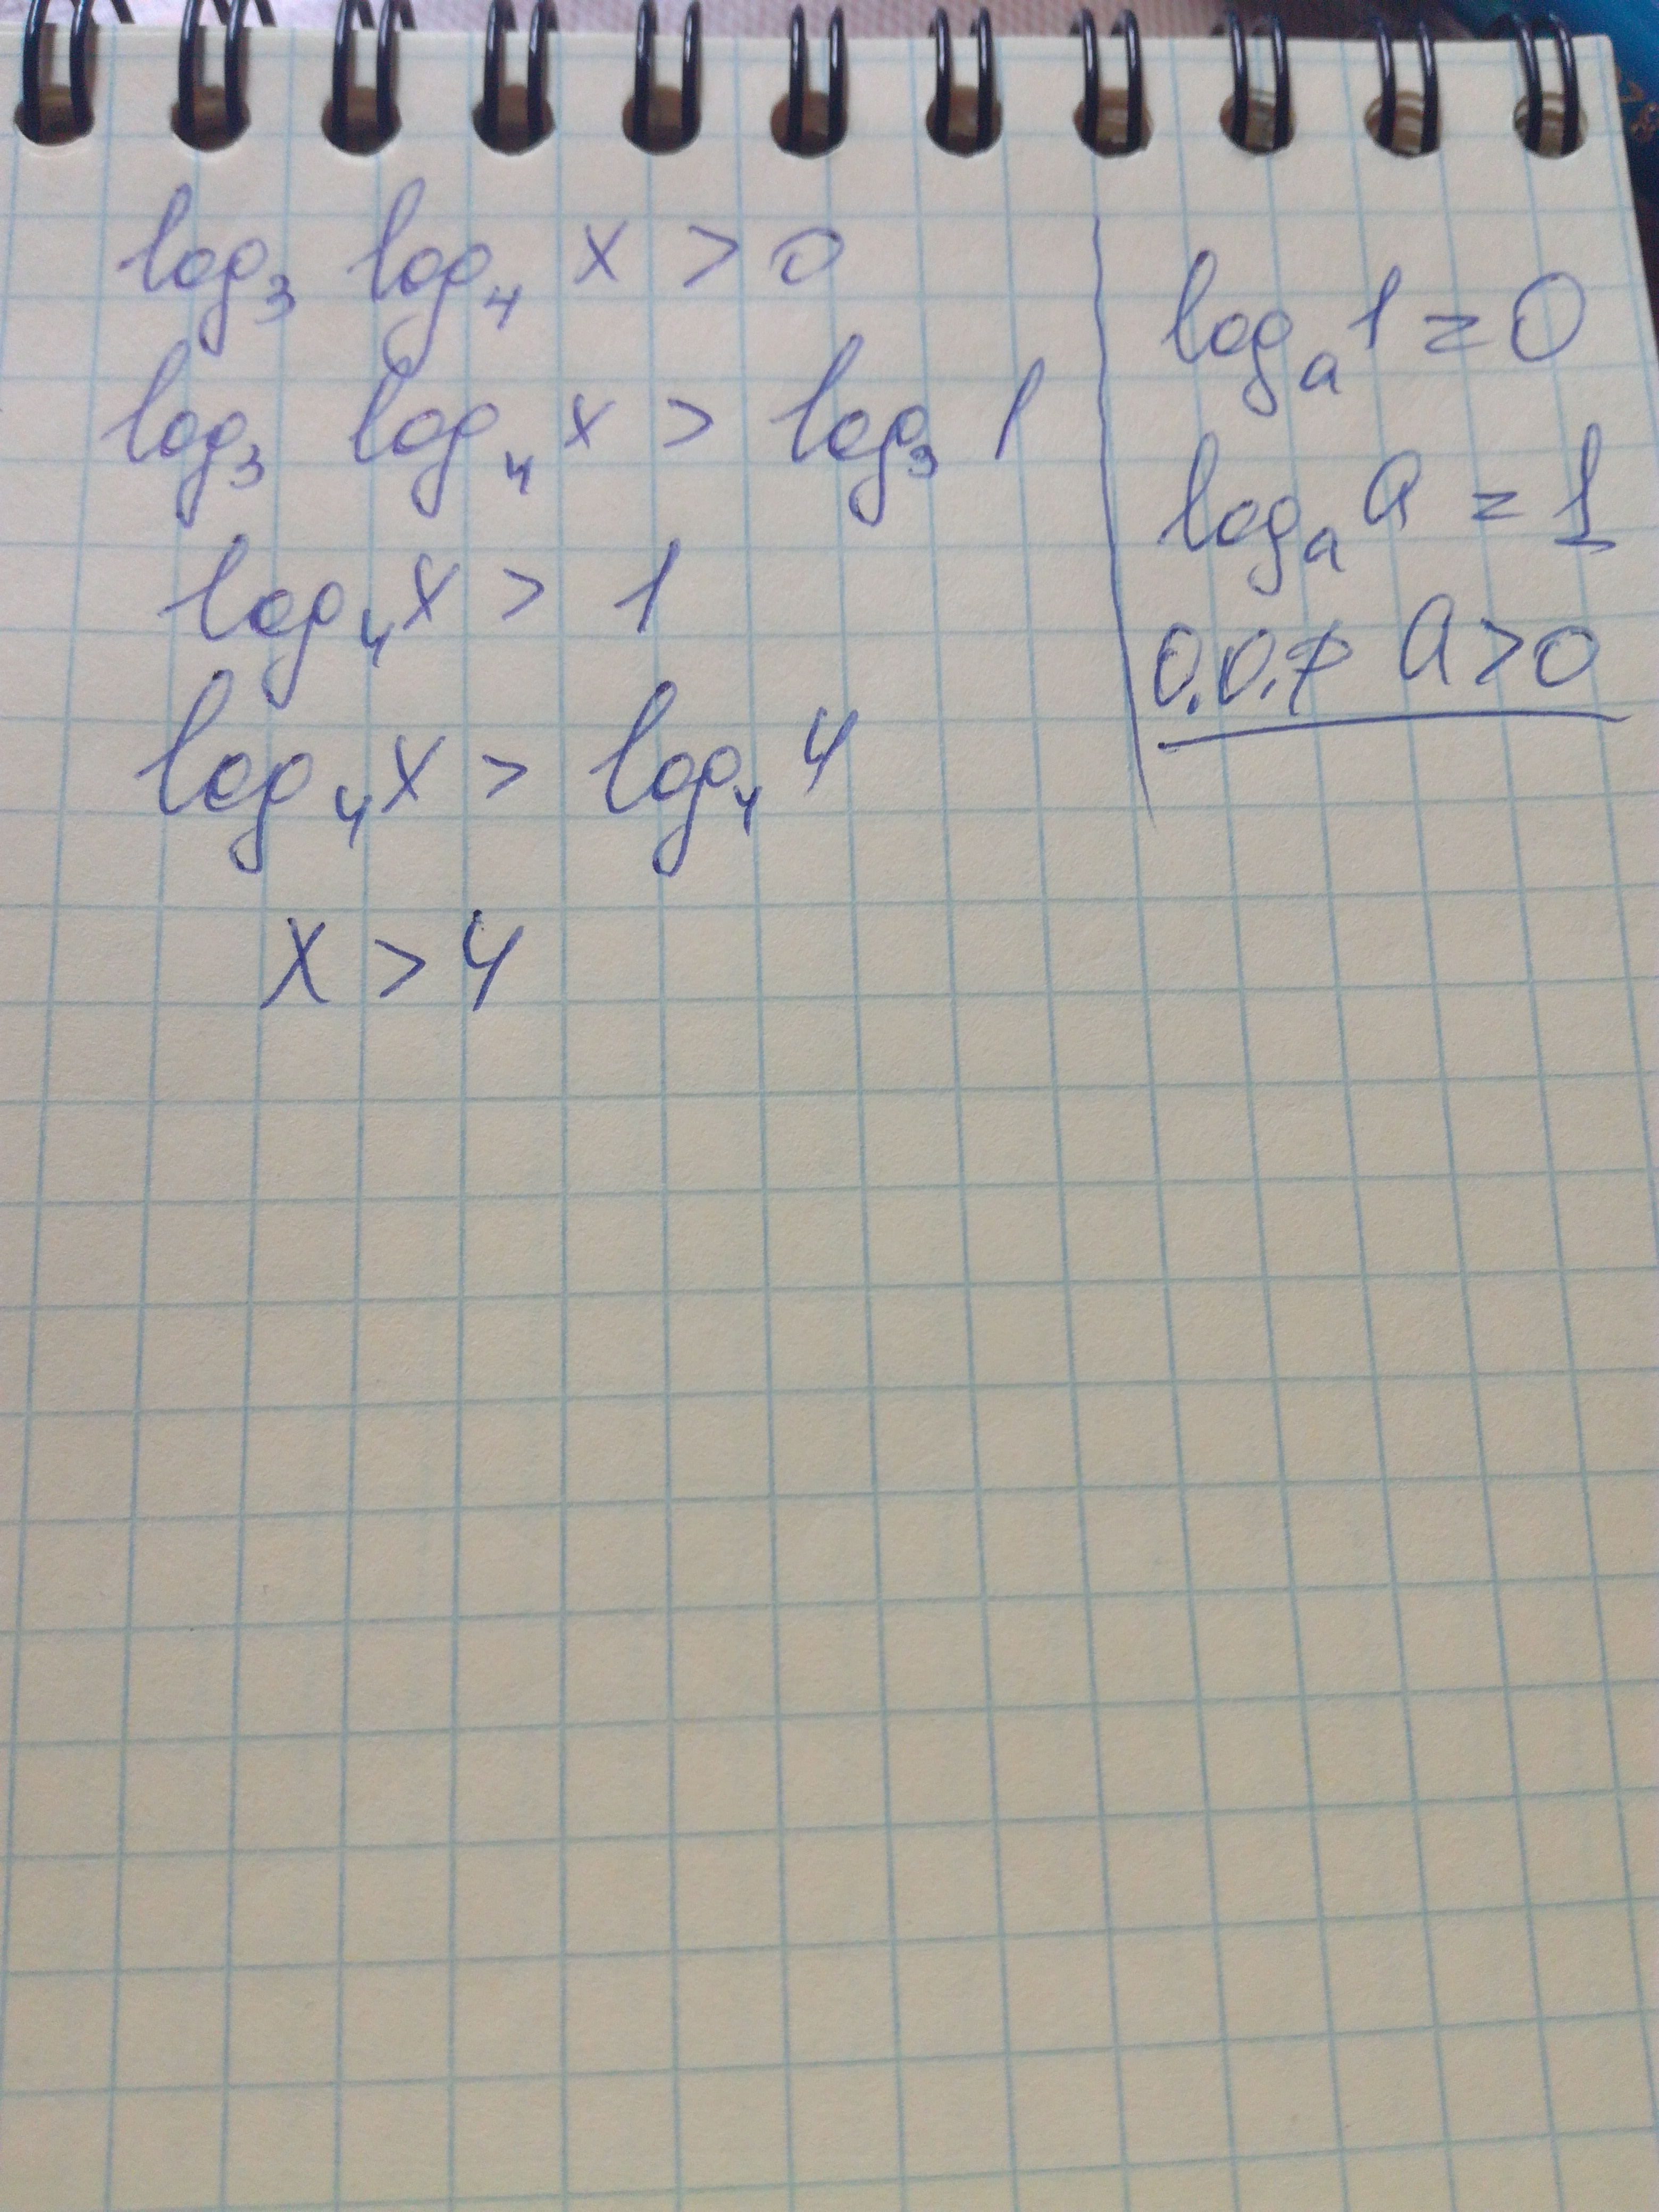 log₃ log₄ x > 0
log₃ log₄ x > log₃ 1
log₄ x > 1
log₄ x > log₄ 4
x > 4
logₐ 1 = 0
logₐ a = 1
a > 0